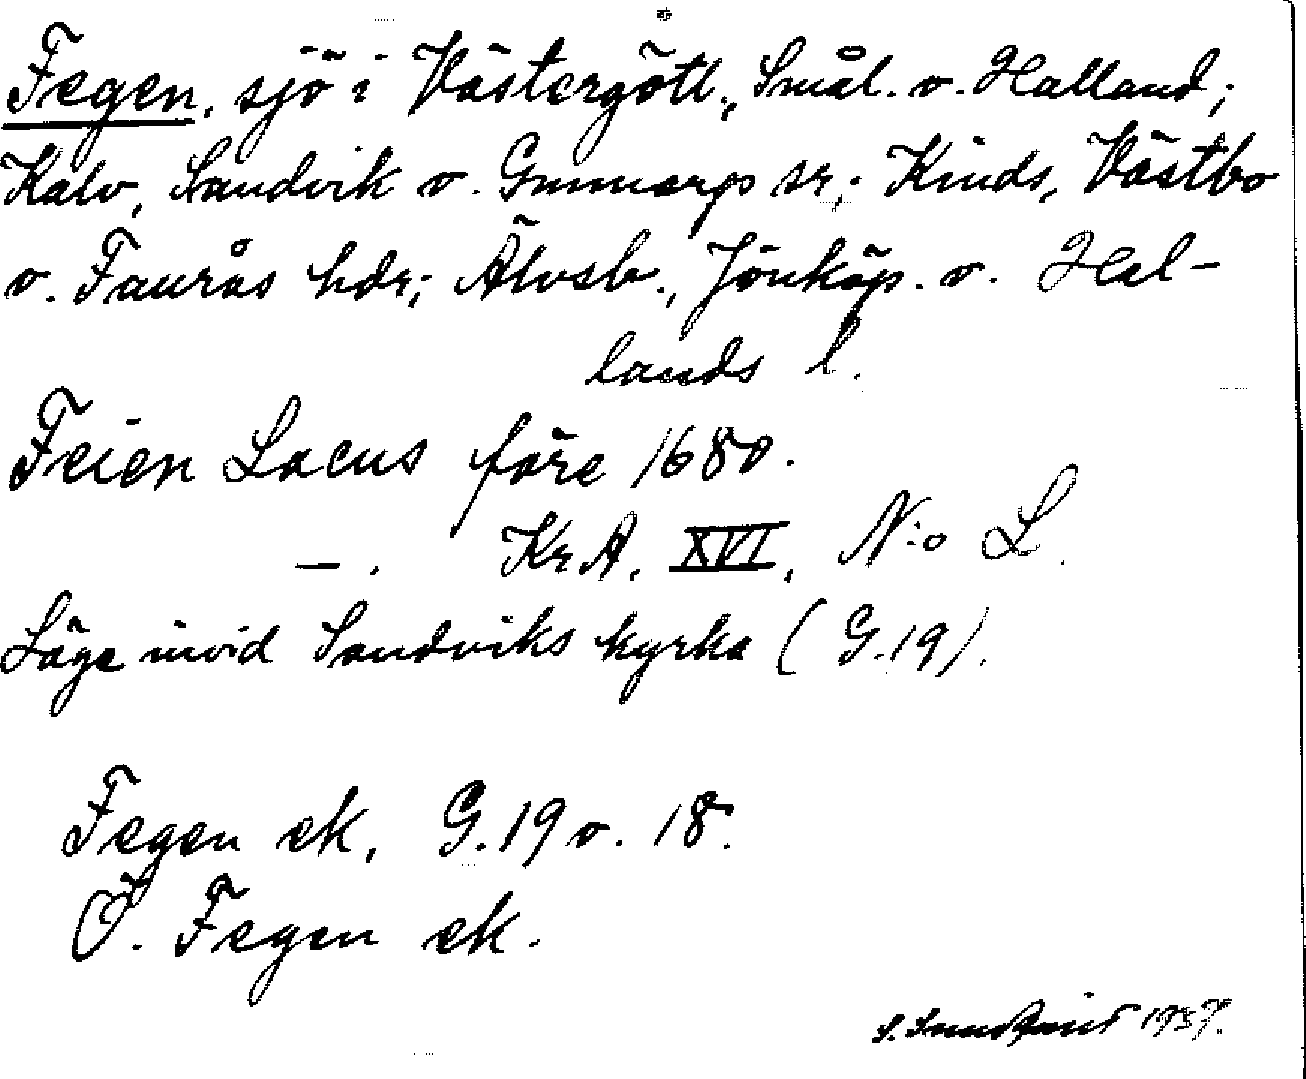 Fegen, sjö i Västergötl., Smål. o. Halland;
Kalv, Sandvik o. Gunnarps sr; Kinds, Västbo
o. Faurås hdr; Älvsb., Jönköp. o. Hal-
lands l.
Feien Lacus före 1680.
—. KrA. XVI. N:o L.
Läge invid Sandviks kyrka (G.19).
Fegen ek. G.19 o. 18.
Ö. Fegen ek.
S. 1937.